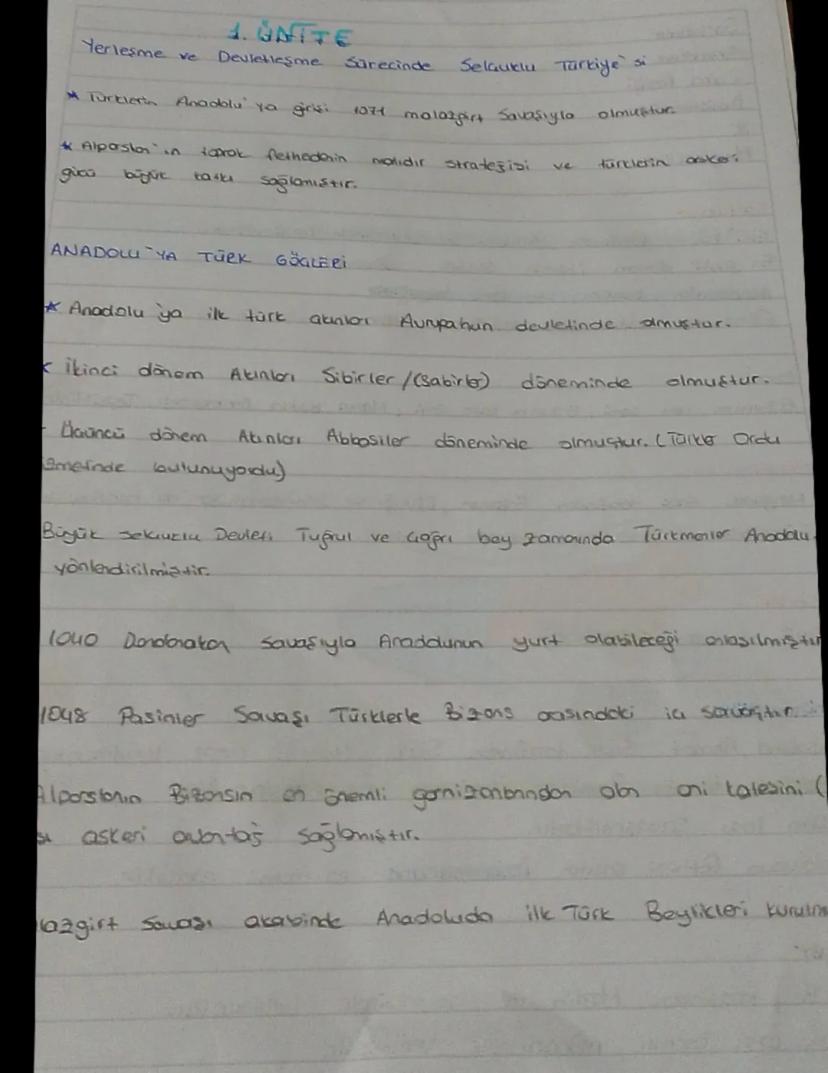 1. ÜNİTE
Yerleşme ve Devletleşme Sürecinde Selçuklu Türkiye'si
* Türklerin Anadolu'ya girişi 1071 malazgirt Savaşıyla olmuştur.
* Alpaslan'ın toprak fethedenin malıdır stratejisi ve türklerin askeri
gücü büyük katkı sağlamıştır.
ANADOLU'YA TÜRK GÖÇLERİ
* Anadolu'ya ilk türk akınları Avrupahun devletinde olmuştur.
* İkinci dönem Akınları Sibirler /(Sabirler) döneminde olmuştur.
Üçüncü dönem Akınları Abbasiler döneminde olmuştur. (Türkler Ordu
bulunuyordu)
Büyük Selçuklu Devleti Tuğrul ve Çağrı bey zamanında Türkmenler Anadolu
yönlendirilmiştir.
1040 Dandanakan Savaşıyla Anadolunun yurt olabileceği anlaşılmıştır
1048 Pasinler Savaşı Türklerle Bizans arasındaki savaştır.
Alparslanın Bizansın en önemli garnizonlarından olan ani kalesini (
sı askeri avantaj sağlamıştır.
lazgirt Savaşı akabinde Anadoluda ilk Türk Beylikleri kurulm